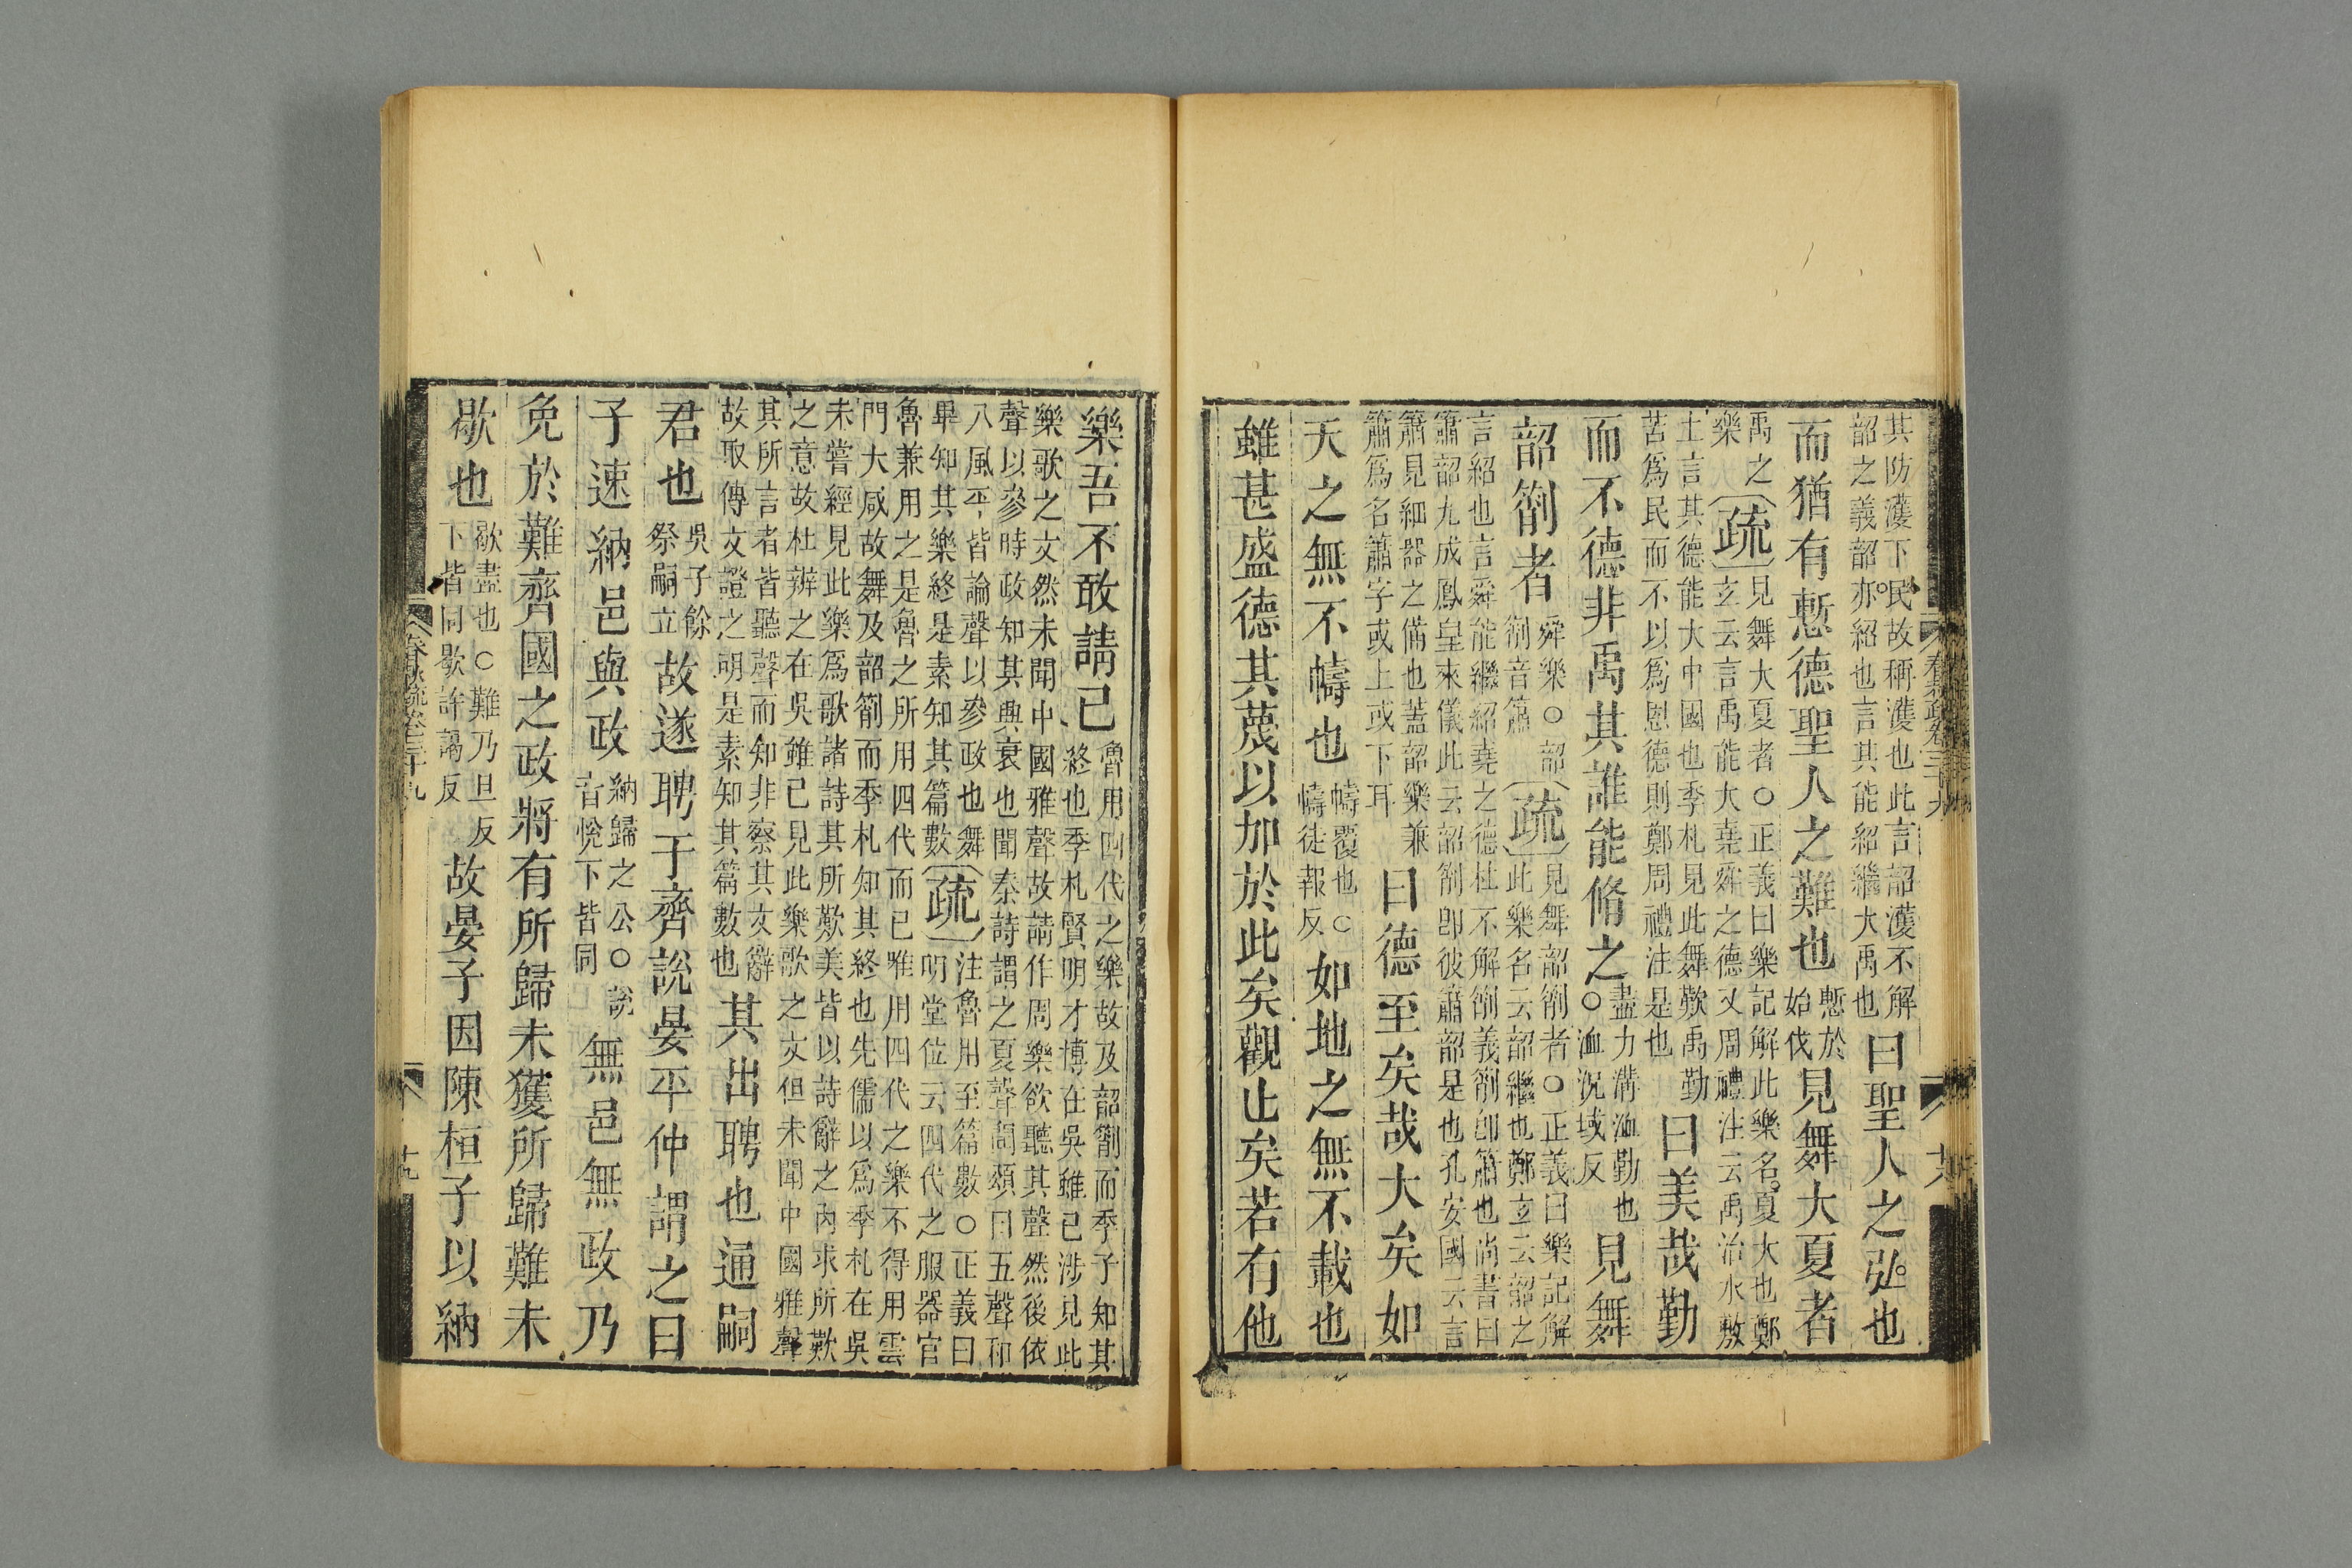 其防濩下民故稱濩也此言韶濩不解
韶之義韶亦紹也言其能紹繼大禹也
曰聖人之弘也
而猶有慙德聖人之難也
慙於
始伐
見舞大夏者
禹之
樂
疏
見舞大夏者○正義曰樂記解此樂名夏大也鄭
玄云言禹能大堯舜之德又周禮注云禹治水敷
土言其德能大中國也季札見此舞歎禹勤
苦爲民而不以爲恩德則鄭周禮注是也
曰美哉勤
而不德非禹其誰能脩之
盡力溝洫勤也
○洫況域反
見舞
韶箾者
舜樂○韶
箾音簫
疏
見舞韶箾者○正義曰樂記解
此樂名云韶繼也鄭玄云韶之
言紹也言舜能繼紹堯之德杜不解箾義箾卽簫也尚書曰
簫韶九成鳳皇來儀此云韶箾卽彼簫韶是也孔安國云言
簫見細器之備也蓋韶樂兼
簫爲名簫字或上或下耳
曰德至矣哉大矣如
天之無不幬也
幬覆也○
幬徒報反
如地之無不載也
雖甚盛德其蔑以加於此矣觀止矣若有他
樂吾不敢請已
魯用四代之樂故及韶箾而季子知其
終也季札賢明才博在吳雖已涉見此
樂歌之文然未聞中國雅聲故請作周樂欲聽其聲然後依
聲以參時政知其興衰也聞秦詩謂之夏聲聞頌曰五聲和
八風平皆論聲以參政也舞
畢知其樂終是素知其篇數
疏
注魯用至篇數○正義曰
明堂位云四代之服器官
魯兼用之是魯之所用四代而已唯用四代之樂不得用雲
門大咸故舞及韶箾而季札知其終也先儒以爲季札在吳
未嘗經見此樂爲歌諸詩其所歎美皆以詩辭之內求所歎
之意故杜辨之在吳雖已見此樂歌之文但未聞中國雅聲
其所言者皆聽聲而知非察其文辭
故取傳文證之明是素知其篇數也
其出聘也通嗣
君也
吳子餘
祭嗣立
故遂聘于齊說晏平仲謂之曰
子速納邑與政
納歸之公○說
音悅下皆同
無邑無政乃
免於難齊國之政將有所歸未獲所歸難未
歇也
歇盡也○難乃旦反
下皆同歇許謁反
故晏子因陳桓子以納